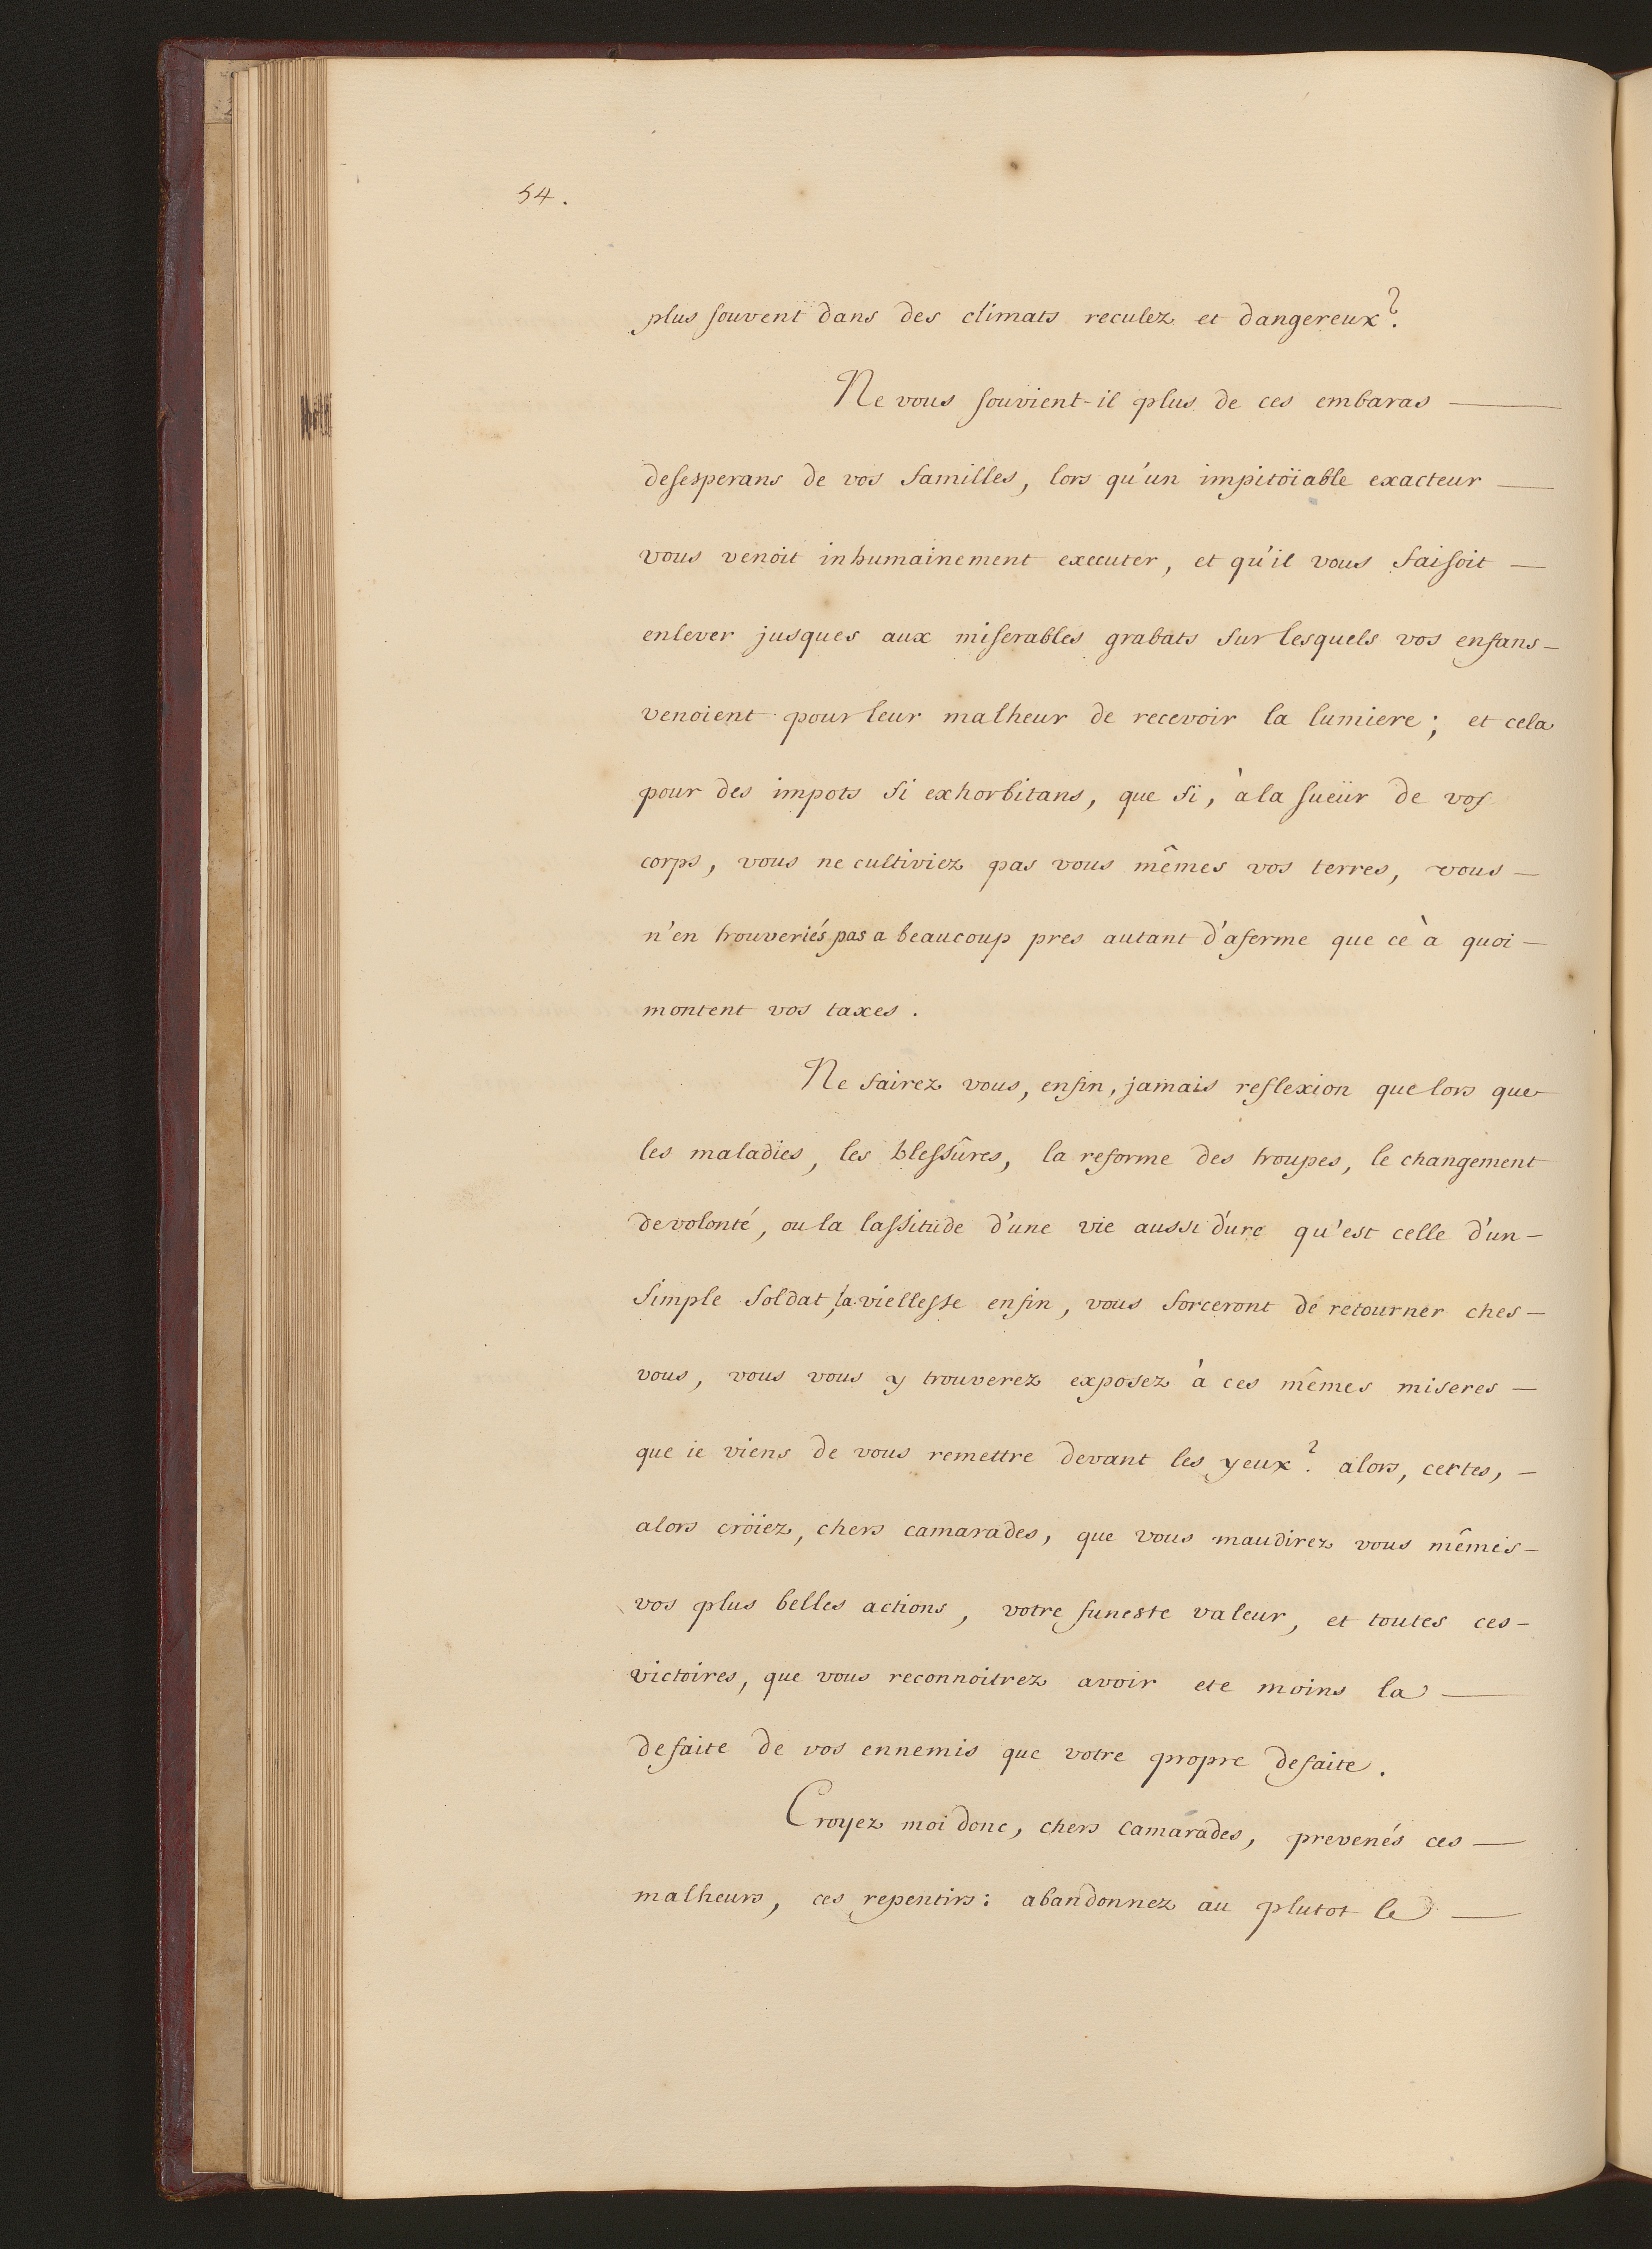 54.
plus souvent dans des climats reculez et dangereux?
Ne vous souvient-il plus de ces embaras —
desesperans de vos familles, lors qu'un impitoïable exacteur —
vous venoit inhumainement executer, et qu'il vous faisoit —
enlever jusques aux miserables grabats sur lesquels vos enfans —
venoient pour leur malheur de recevoir la lumiere; et cela
pour des impots si exhorbitans, que si, à la sueür de vos
corps, vous ne cultiviez pas vous mêmes vos terres, vous —
n'en trouveriés pas a beaucoup pres autant d'aferme que ce à quoi —
montent vos taxes.
Ne fairez vous, enfin, jamais reflexion que lors que
les maladies, les blessûres, la reforme des troupes, le changement
de volonté, ou la lassitude d'une vie aussi dure qu'est celle d'un —
simple soldat, la viellesse enfin, vous forceront de retourner ches —
vous, vous vous y trouverez exposez à ces mêmes miseres —
que ie viens de vous remettre devant les yeux? alors, certes, —
alors croïez, chers camarades, que vous maudirez vous mêmes —
vos plus belles actions, votre funeste valeur, et toutes ces —
victoires, que vous reconnoitrez avoir ete moins la —
defaite de vos ennemis que votre propre defaite.
Croyez moi donc, chers camarades, prevenés ces —
malheurs, ces repentirs: abandonnez au plutot le —